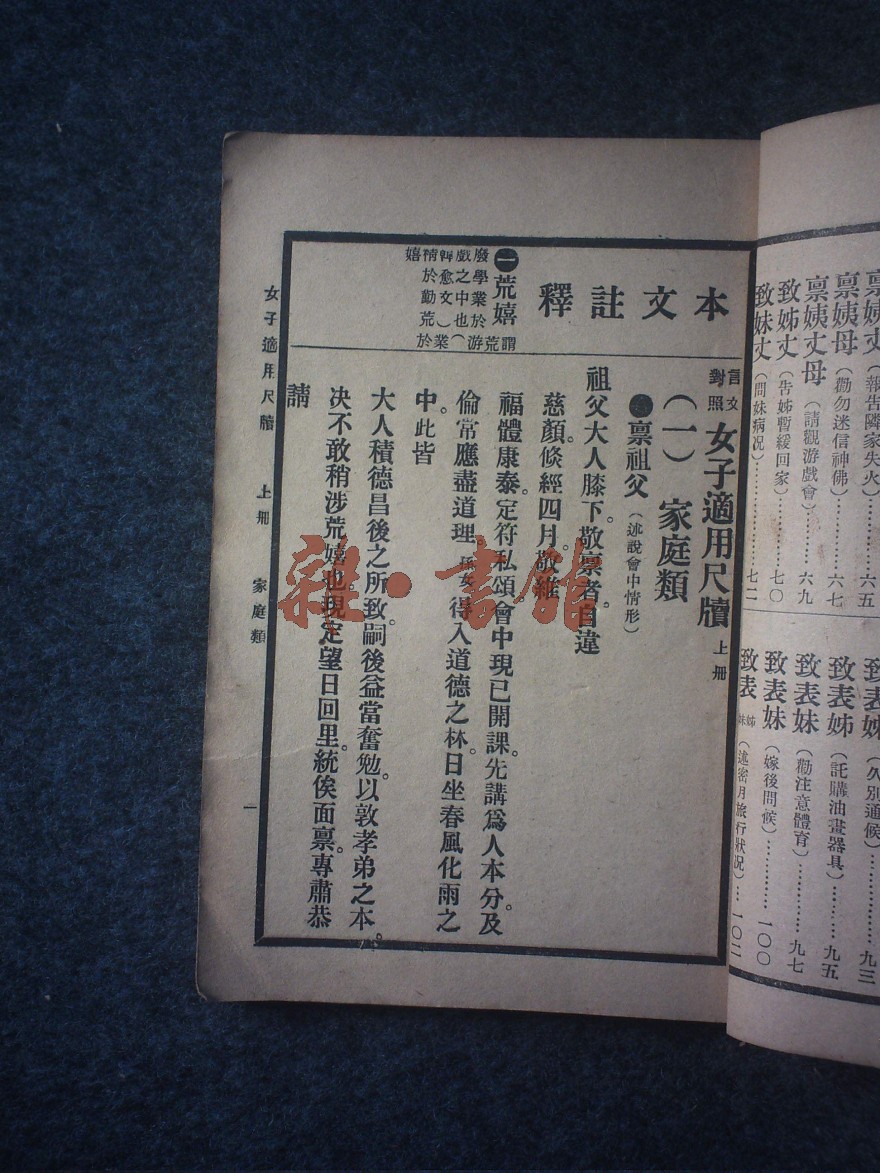 稟姨丈（報告隣家失火）………六五
稟姨母（勸勿迷信神佛）………六七
稟姨丈母（請觀游戲會）………六九
致姊丈（告姊暫緩回家）………七〇
致妹丈（問妹病况）………七二
致表姊（久別通候）………九三
致表姊（託購油畫器具）………九五
致表妹（勸注意體育）………九七
致表妹（嫁後問候）………一〇〇
致表姊妹（述密月旅行狀况）…一〇二
本文註釋
㊀荒嬉 謂荒
廢學業於游
戲之中也（
韓愈文）業
精於勤荒於
嬉
言文對照 女子適用尺牘 上册
（一）家庭類
稟祖父（述說會中情形）
祖父大人膝下。敬禀者。自違
慈顏。倏經四月。敬維
福體康泰。定符私頌。會中現已開課。先講爲人本分。及
倫常應盡道理。孫女得入道德之林。日坐春風化雨之
中。此皆
大人積德昌後之所致。嗣後益當奮勉。以敦孝弟之本。
决不敢稍涉荒嬉也。現定望日回里。統俟面禀。專肅恭
請
女子適用尺牘 上册 家庭類
一
雜·書館